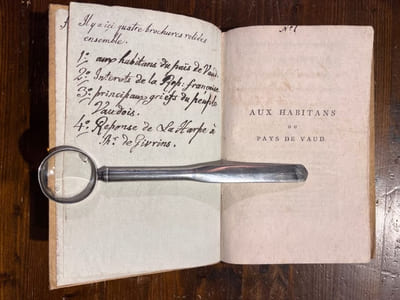 Il y a ici quatre brochures reliées
ensemble.
1º. aux habitans du païs de Vaud.
2º. Interets de la Rép: françoise.
3º. principaux griefs du peuple
Vaudois.
4º. Réponse de La Harpe à
Mr. de Givrins.
Nº. 1
AUX HABITANS
DU
PAYS DE VAUD.